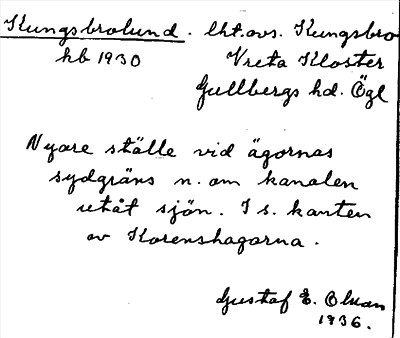 Kungsbrolund. lht. avs. Kungsbro
kb 1930 Vreta Kloster
Gullbergs hd. Ögl
Nyare ställe vid ägornas
sydgräns n. om kanalen
utåt sjön. I s. kanten
av Korenshagarna.
Gustaf E. Olsson
1936.